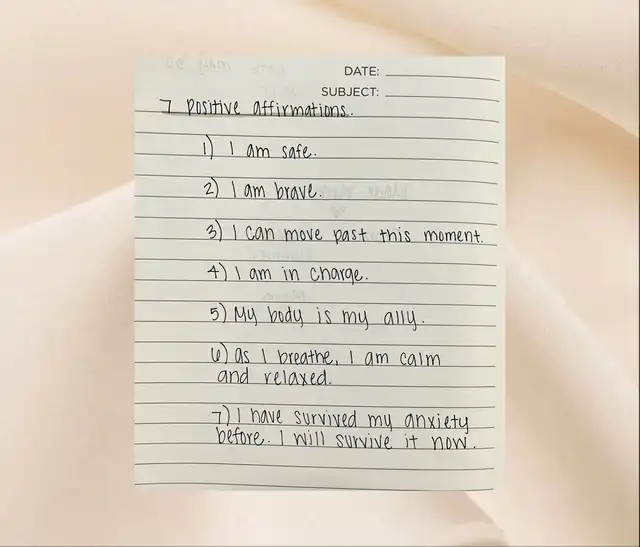 DATE:
SUBJECT:
7 Positive affirmations.
1) I am safe.
2) I am brave.
3) I can move past this moment.
4) I am in charge.
5) My body is my ally.
6) as I breathe, I am calm
and relaxed.
7) I have survived my anxiety
before. I will survive it now.